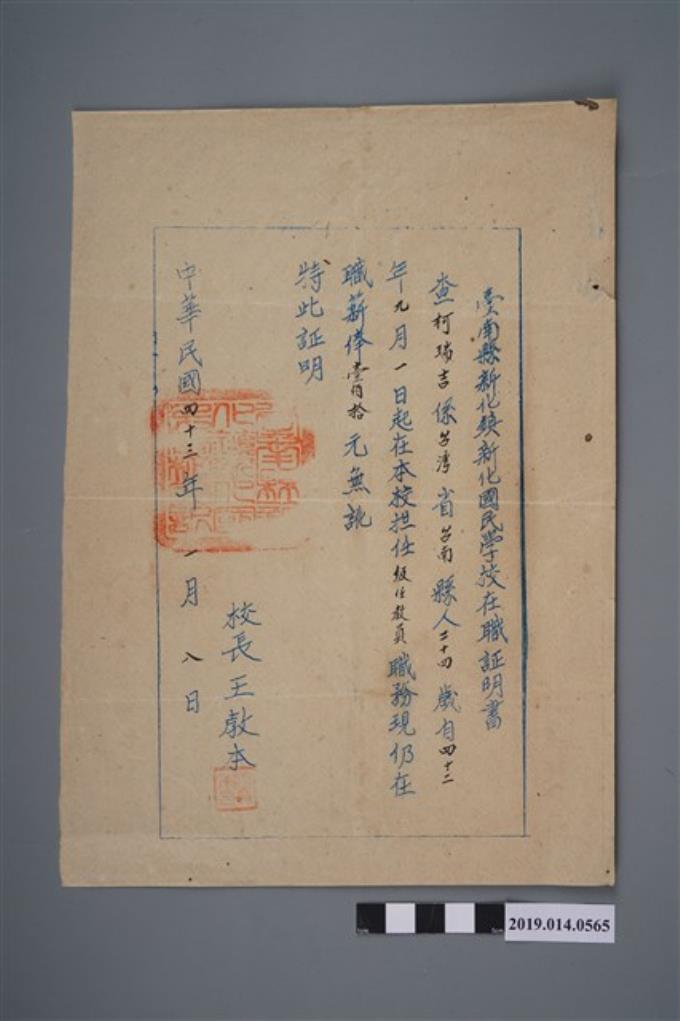 臺南縣新化鎮新化國民學校在職証明書
查柯瑞吉係台灣省台南縣人二十四歲自四十二
年九月一日起在本校担任級任教員職務現仍在
職薪俸壹百拾元無訛
特此証明
校長王教本
中華民國四十三年一月八日
2019.014.0565